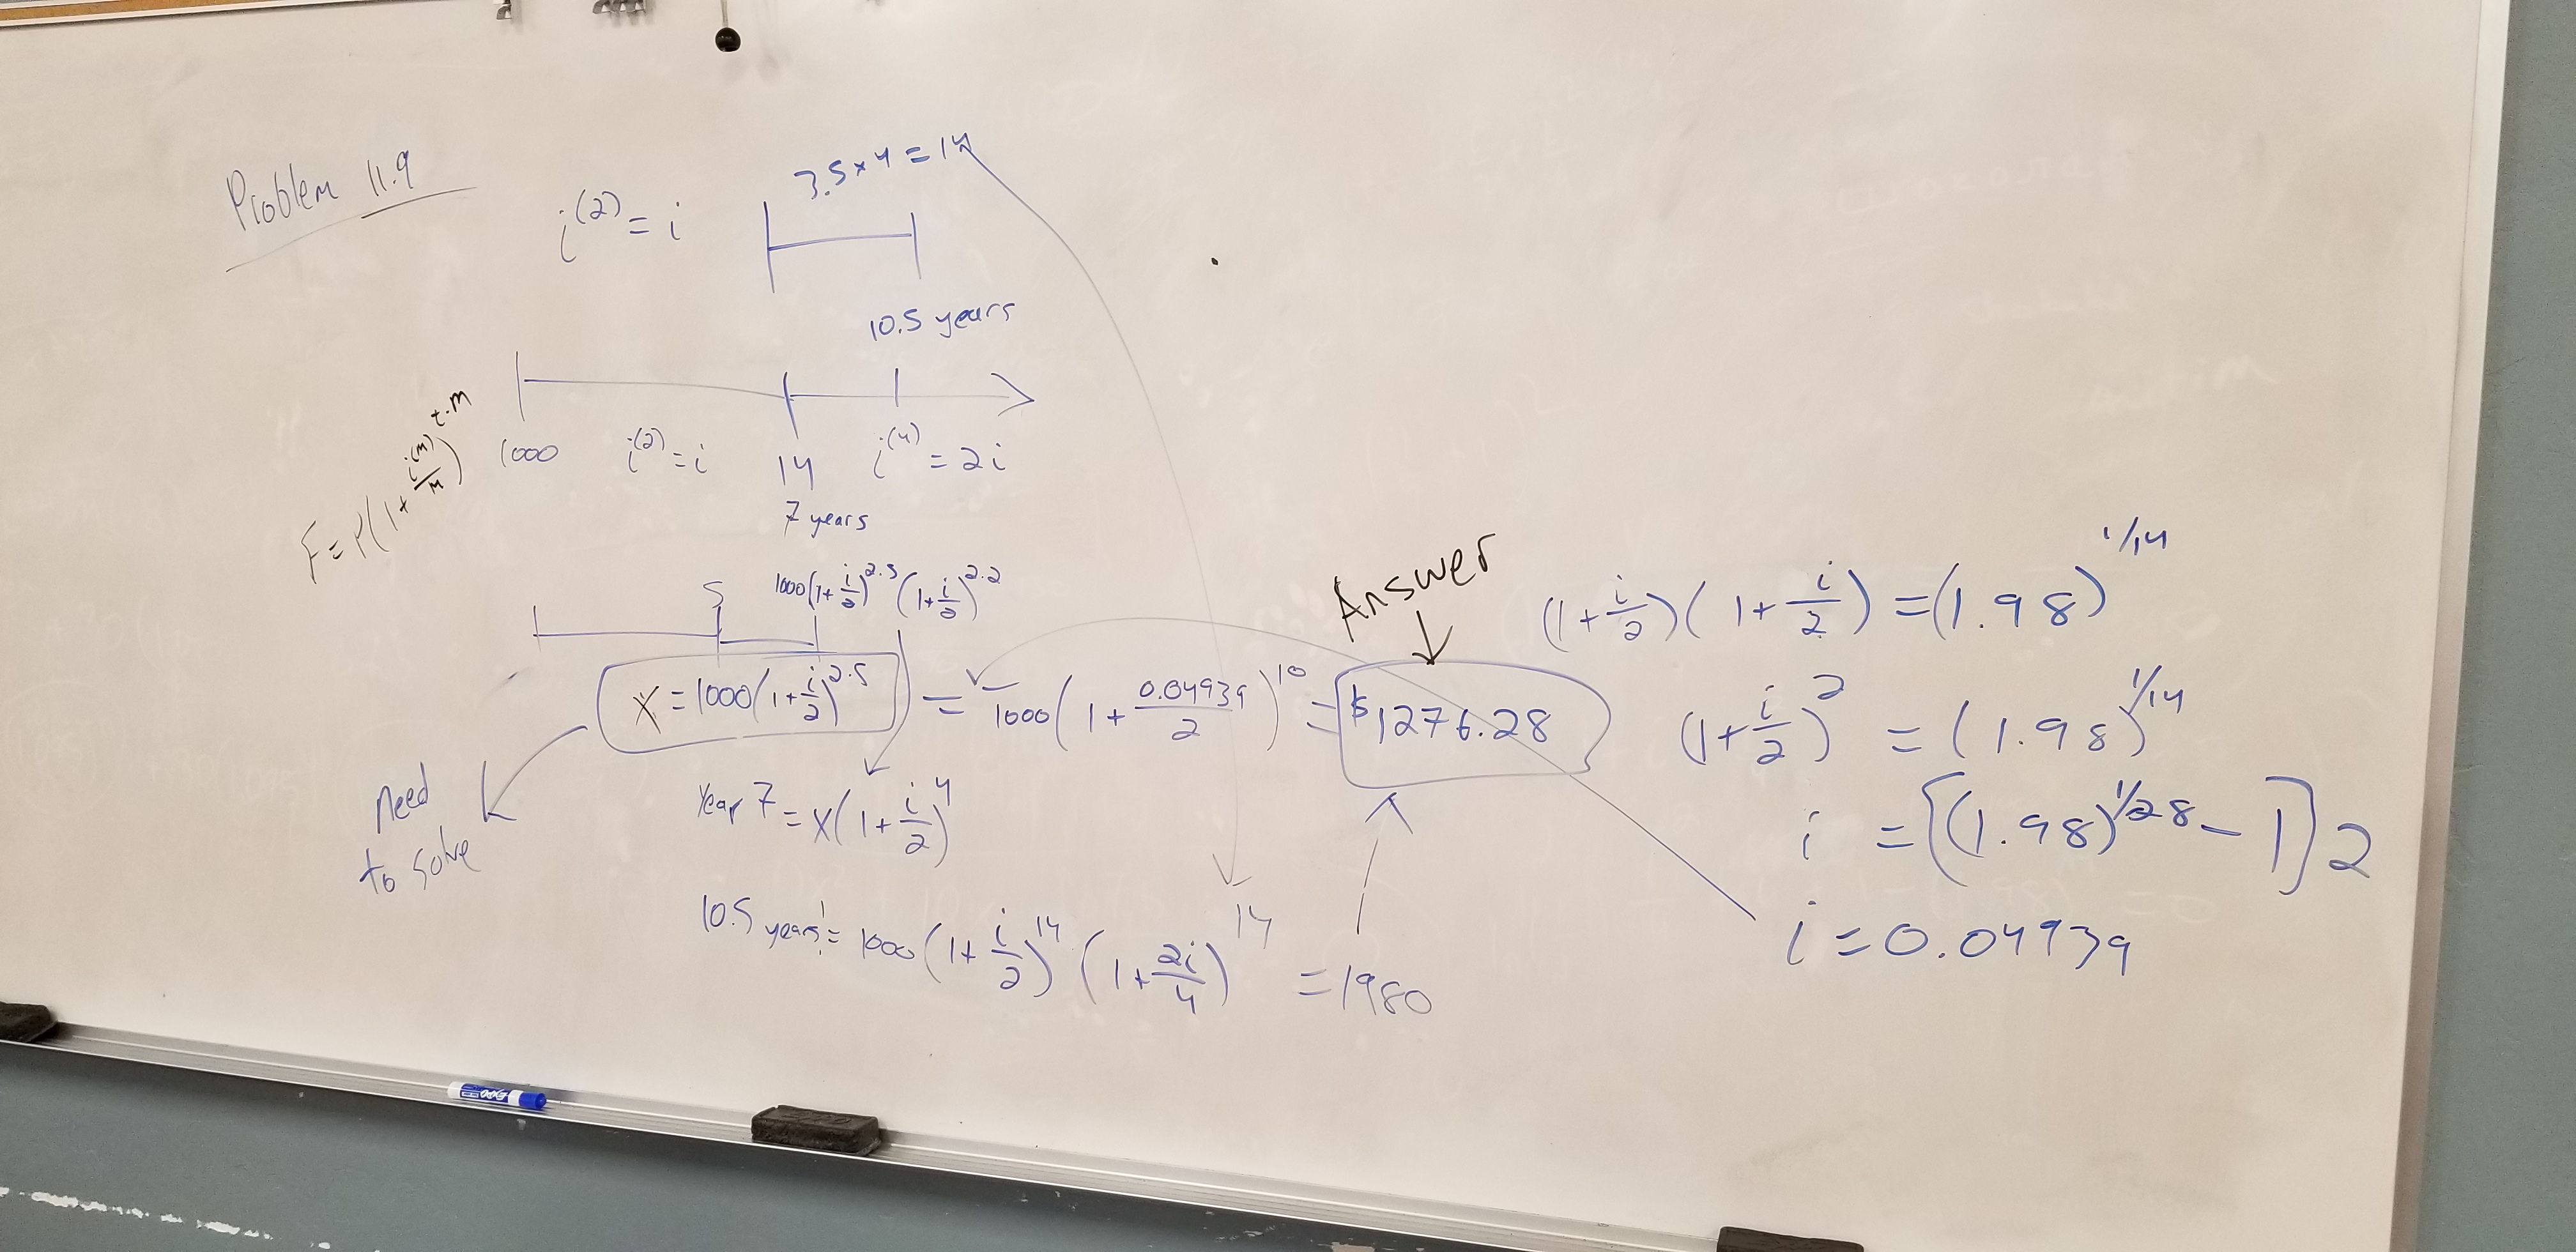 Problem 11.9
i^(2) = i
3.5 × 4 = 14
10.5 years
F = P(1 + i^(m)/m)^t·m
1000
i^(2) = i
14
i^(4) = 2i
7 years
5
1000(1 + i/2)^2·5 (1 + i/2)^2·2
X = 1000(1 + i/2)^2·5 = 1000(1 + 0.04939/2)^10 = $1276.28
Answer
need
to solve
Year 7 = X(1 + i/2)^4
10.5 years = 1000(1 + i/2)^14 (1 + 2i/4)^14 = 1980
(1 + i/2)(1 + i/2) = (1.98)^1/14
(1 + i/2)^2 = (1.98)^1/14
i = [(1.98)^1/28 - 1]2
i = 0.04939